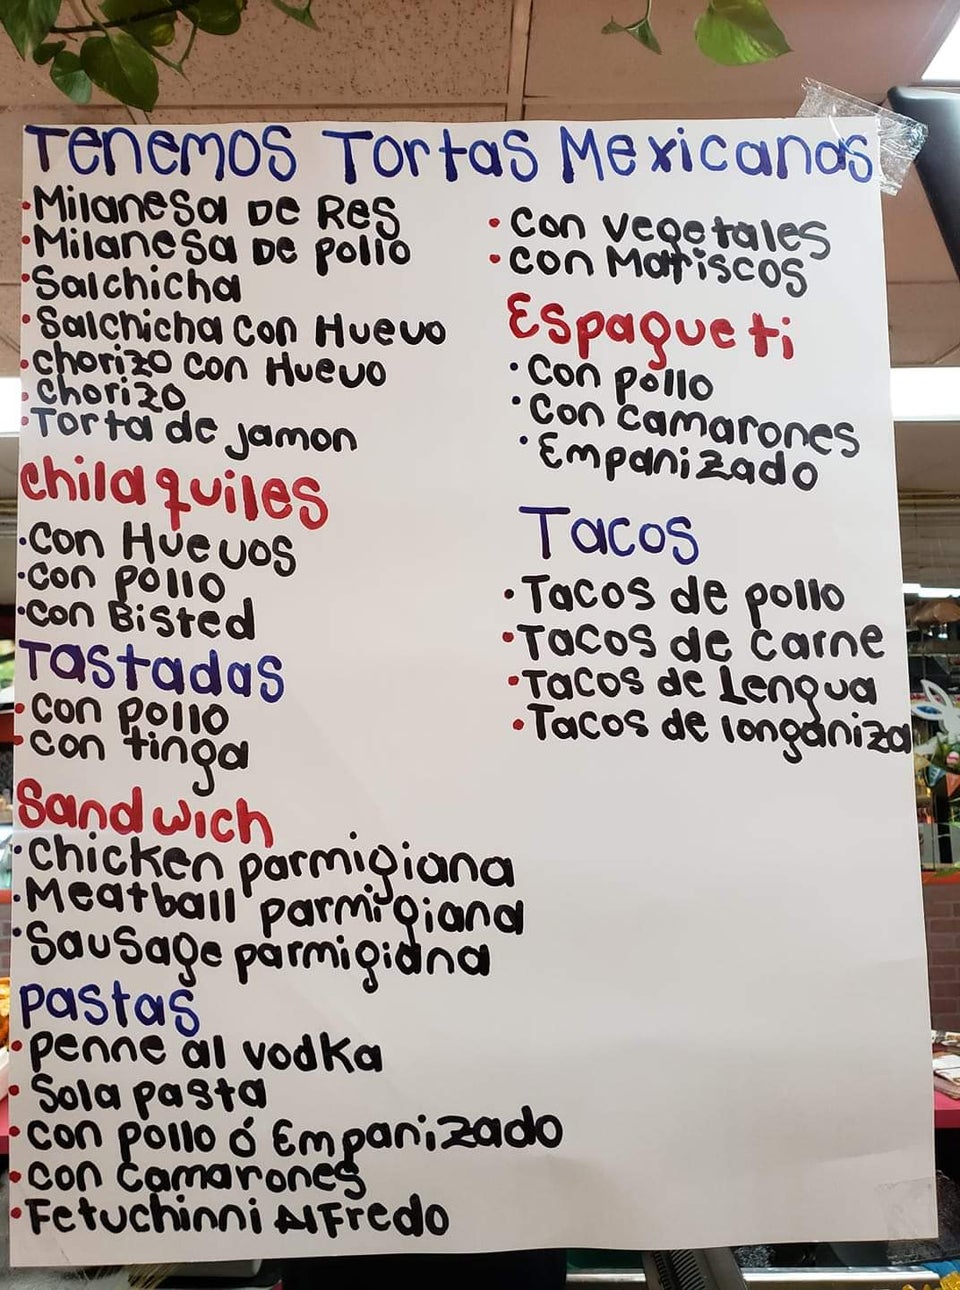 Tenemos Tortas Mexicanas
•Milanesa De Res
•Milanesa De pollo
•Salchicha
•Salchicha con Huevo
•chorizo con Huevo
•chorizo
•Torta de jamon
chilaquiles
•con Huevos
•con pollo
•con Bisted
Tastadas
•con pollo
•con tinga
Sandwich
•chicken parmigiana
•Meatball parmigiana
•Sausage parmigiana
pastas
•penne al vodka
•Sola pasta
•con pollo ó Empanizado
•con camarones
•Fetuchinni Alfredo
•con vegetales
•con Marriscos
Espagueti
•con pollo
•con camarones
•Empanizado
Tacos
•Tacos de pollo
•Tacos de carne
•Tacos de Lengua
•Tacos de longaniza